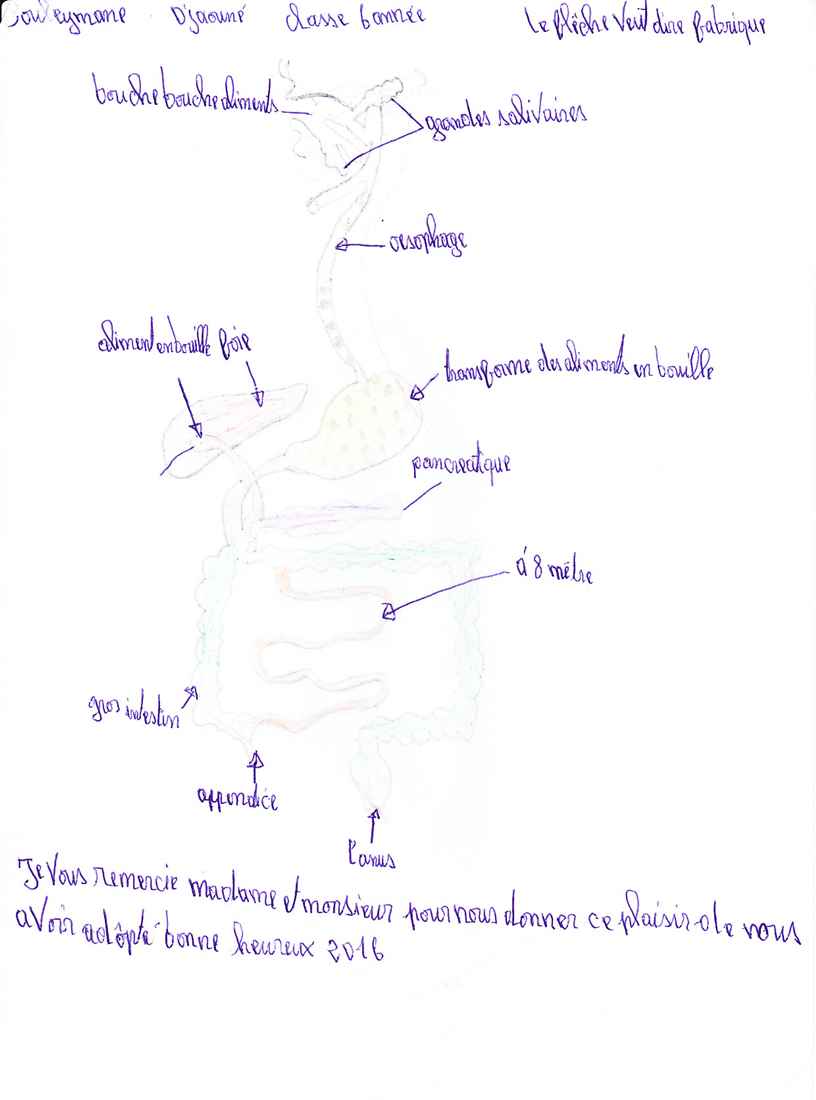 Souleymane Djaouné classe 6 année
Le flêche veut dire fabrique
bouche bouche aliments
grandes salivaires
oesophage
aliment en bouille foie
transforme des aliments en bouille
pancreatique
à 8 mètre
gros intestin
appendice
l'anus
Je vous remercie madame et monsieur pour nous donner ce plaisir de nous
avoir adôpté bonne heureux 2016